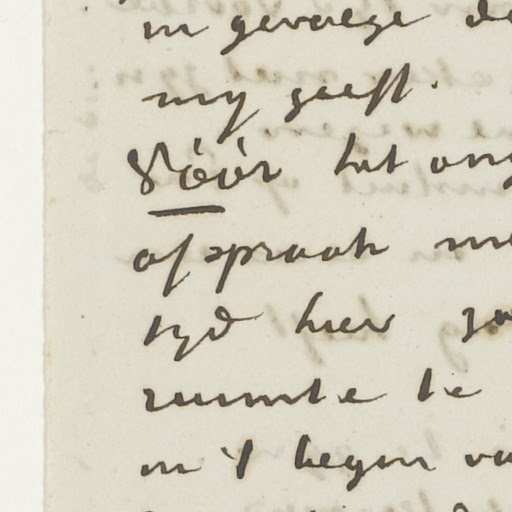 in gevolge de
my geeft.
Vóór het ong
afspraak me
tyd hier zo
ruimte te
in 't begin va